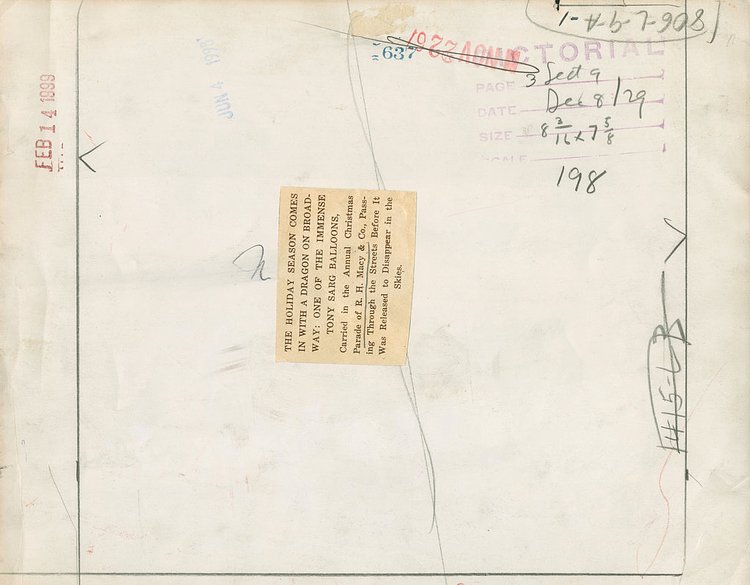 806-L-9-A-1
637
CTORIAL
PAGE 3 Sect 9
DATE Dec 8/29
SIZE 8 3/16 x 7 5/8
SCALE
198
JUN 4
FEB 14 1999
THE HOLIDAY SEASON COMES
IN WITH A DRAGON ON BROAD-
WAY: ONE OF THE IMMENSE
TONY SARG BALLOONS,
Carried in the Annual Christmas
Parade of R. H. Macy & Co., Pass-
ing Through the Streets Before It
Was Released to Disappear in the
Skies.